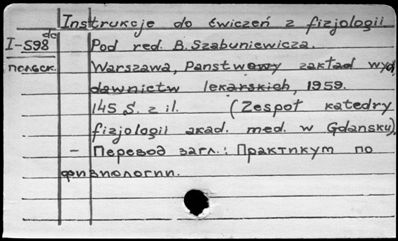 Instrukcje do ćwiczeń z fizjologii
de
I-598 Pod red. B. Szabuniewicza.
польск. Warszawa, Panstwowy zakład wyd
dawnictw lekarskich, 1959.
145 S. z il. (Zespoł katedry
fizjologii akad. med. w Gdansku).
- Перевод загл.: Практикум по
физиологии.